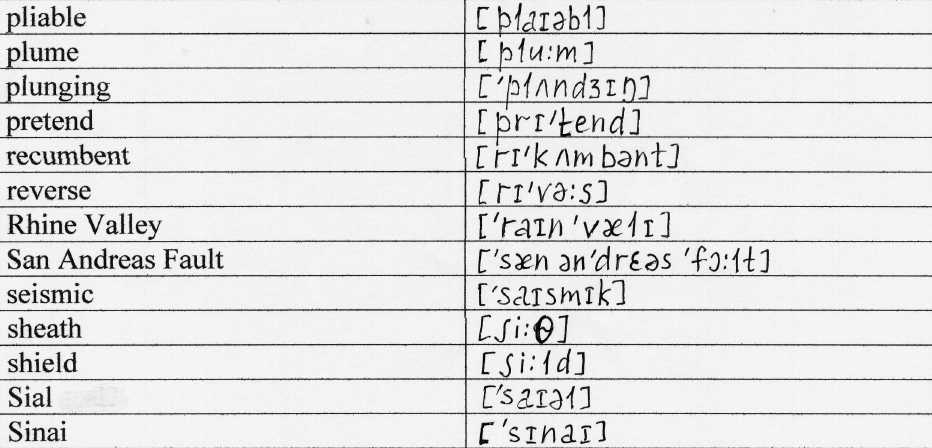 pliable [plaɪəbl]
plume [plu:m]
plunging ['plʌndʒɪŋ]
pretend [prɪ'tend]
recumbent [rɪ'kʌmbənt]
reverse [rɪ'və:s]
Rhine Valley ['raɪn 'vælɪ]
San Andreas Fault ['sæn ən'drɛəs 'fɔ:lt]
seismic ['saɪsmɪk]
sheath [ʃi:θ]
shield [ʃi:ld]
Sial ['saɪəl]
Sinai ['sɪnaɪ]